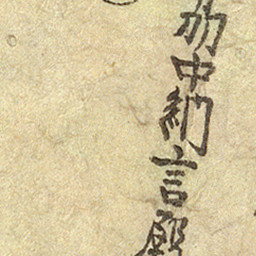 中納言殿